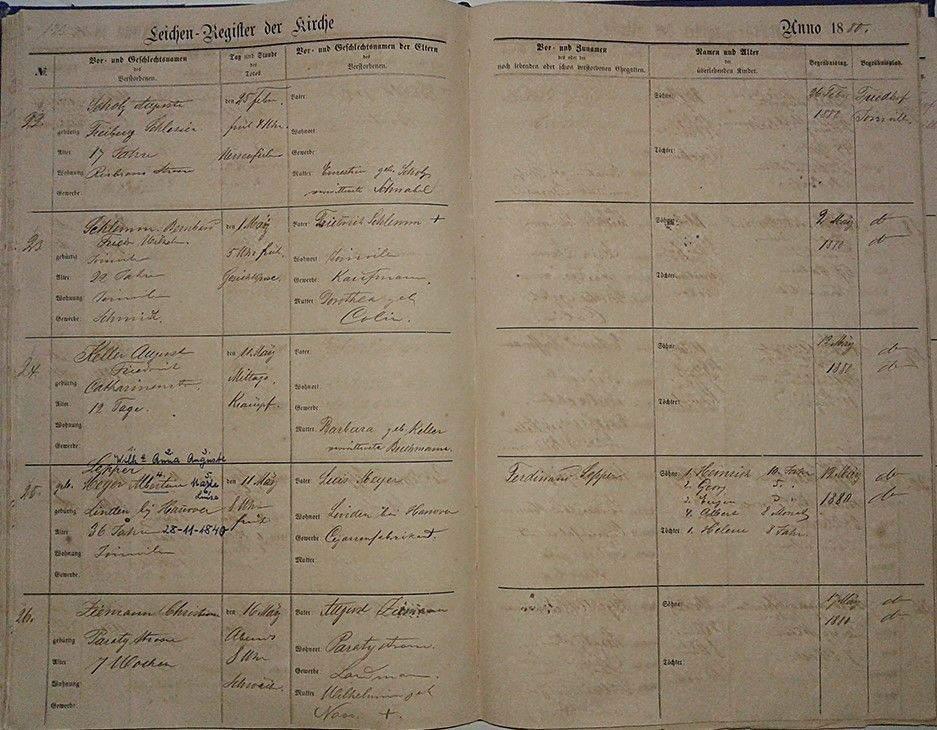 Leichen-Register der Kirche
Anno 1880.
№
Vor- und Geschlechtsnamen
des
Verstorbenen.
Tag und Stunde
des
Todes
Vor- und Geschlechtsnamen der Eltern
des
Verstorbenen.
Vor- und Zunamen
des oder der
noch lebenden oder schon verstorbenen Ehegatten.
Namen und Alter
der
überlebenden Kinder.
Begräbnistag.
Begräbnisplatz.
22
Scholz Auguste
gebürtig Freiburg Schlesien
Alter 17 Jahre
Wohnung Strasse
Gewerbe:
den 25 Febr.
früh 4 Uhr
Vater:
Wohnort
Gewerbe:
Mutter: Ernestine geb. Scholz
Schnabel
Söhne:
Töchter:
26 Febr.
1880
Friedhof
Joinville
23
Schlemm Bernhard
gebürtig Joinville
Alter 22 Jahre
Wohnung Joinville
Gewerbe: Schmidt.
den 1 März
5 Uhr früh.
Vater: Dietrich Schlemm +
Wohnort Joinville
Gewerbe: Kaufmann
Mutter: Dorothea geb
Colin.
Söhne:
Töchter:
2 März
1880
do
do
24
Keller August
Friedrich
gebürtig Catharinenstr.
Alter 12 Tage.
Wohnung
Gewerbe:
den 11 März
Mittags.
Krampf.
Vater
Wohnort
Gewerbe
Mutter: Barbara geb Keller
Söhne:
Töchter:
12 März
1880
do
do
25.
Lepper Wilh. Anna Auguste
geb. Meyer Albertine
Luise
gebürtig Linden bj Hanover
Alter 36 Jahr 28-11-1840
Wohnung Joinville
Gewerbe:
den 11 März
8 Uhr
früh
Vater Louis Meyer
Wohnort Linden bei Hanover
Gewerbe Cigarrenfabrikant.
Mutter
Ferdinand Lepper
Söhne 1. Heinrich 10 Jahr
2. Georg 5 "
3. Eugen 3 "
4. Albert 8 Monat
Töchter 1. Helene 8 Jahr.
12 März
1880
do
do
26.
Ziemann Christian
gebürtig Paratystrasse
Alter 7 Wochen
Wohnung
Gewerbe:
den 16 März
Abends
8 Uhr
Schwäche.
Vater August Ziemann
Wohnort Paratystrasse.
Gewerbe Landmann.
Mutter Wilhelmine geb
Söhne:
Töchter:
17 März
1880
do
do